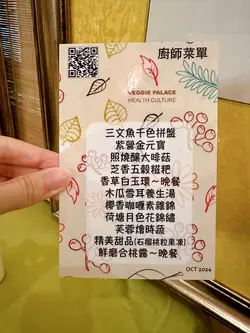 廚師菜單
VEGGIE PALACE
HEALTH CULTURE
三文魚千色拼盤
紫醫金元寶
照燒釀大啡菇
芝香五穀糍粑
香草白玉環~晚餐
木瓜雪耳養生湯
椰香咖喱素雜錦
荷塘月色花錦繡
芙蓉燴時蔬
精美甜品(石榴桃粒果凍)
鮮磨合桃露~晚餐
OCT 2024